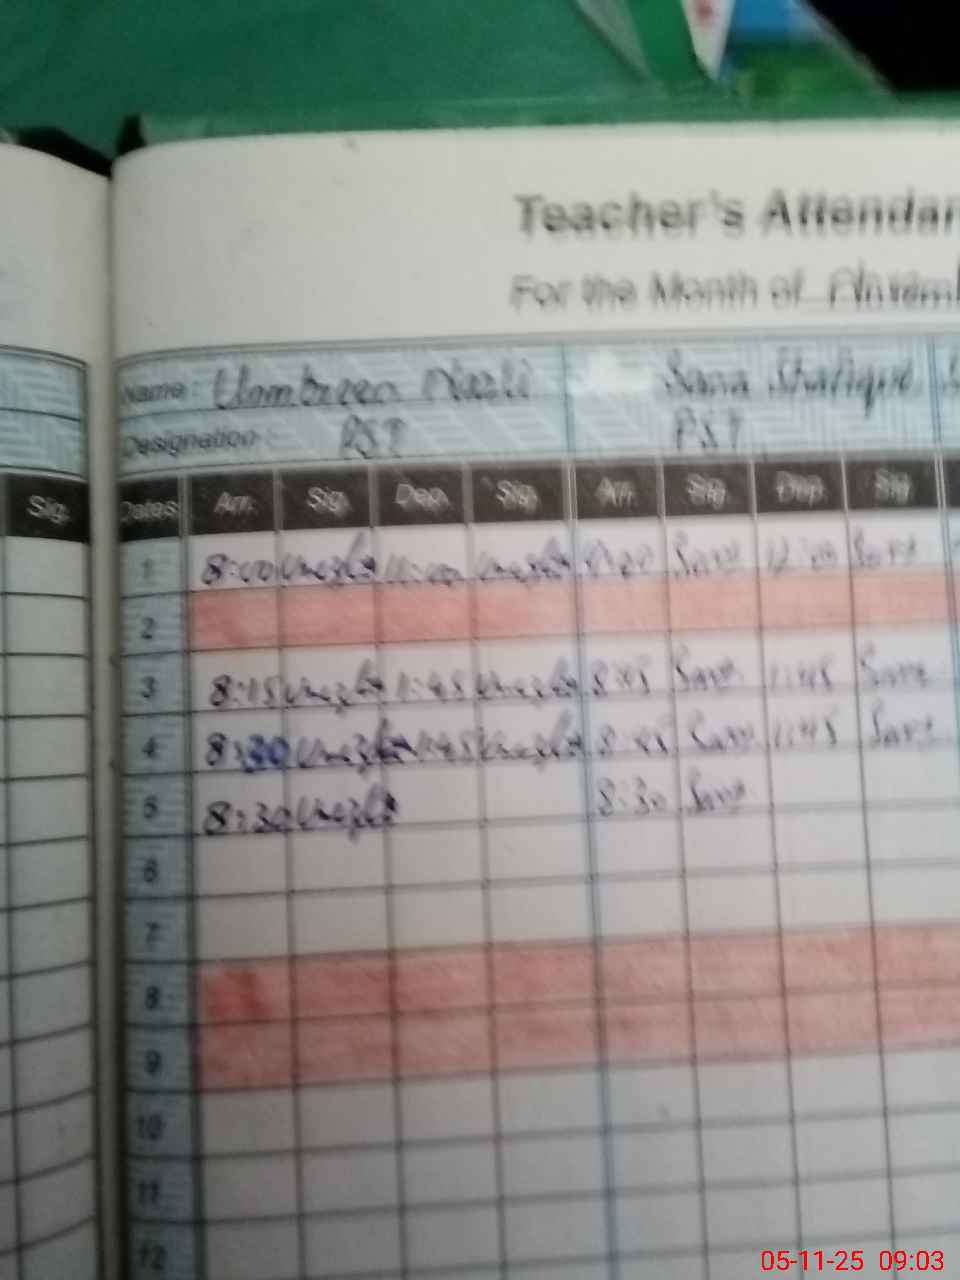 Teacher's Attendan
For the Month of Novem
Name: Umbreen Sana Shafique
Designation: PST PST
Sig. Dates Arr. Sig. Dep. Sig. Arr. Sig. Dep. Sig.
1 8:00 11:00 Sana 12:00 Sana
2
3 8:15 11:45 8:45 Sana 1:45 Sana
4 8:30 1:45 8:45 Sana 1:45 Sana
5 8:30 8:30 Sana
6
7
8
9
10
11
12
05-11-25 09:03